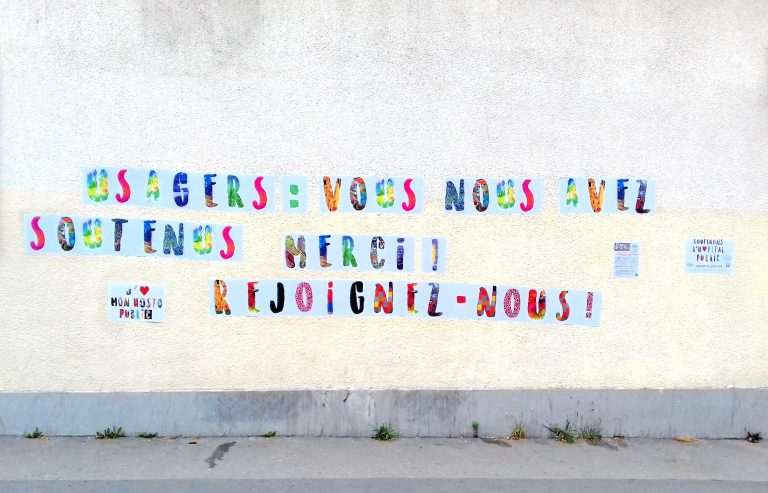 USAGERS: VOUS NOUS AVEZ
SOUTENUS MERCI!
REJOIGNEZ-NOUS!
J'♥
MON HOSTO
PUBLIC
SOUTENONS
L'HOPITAL
PUBLIC